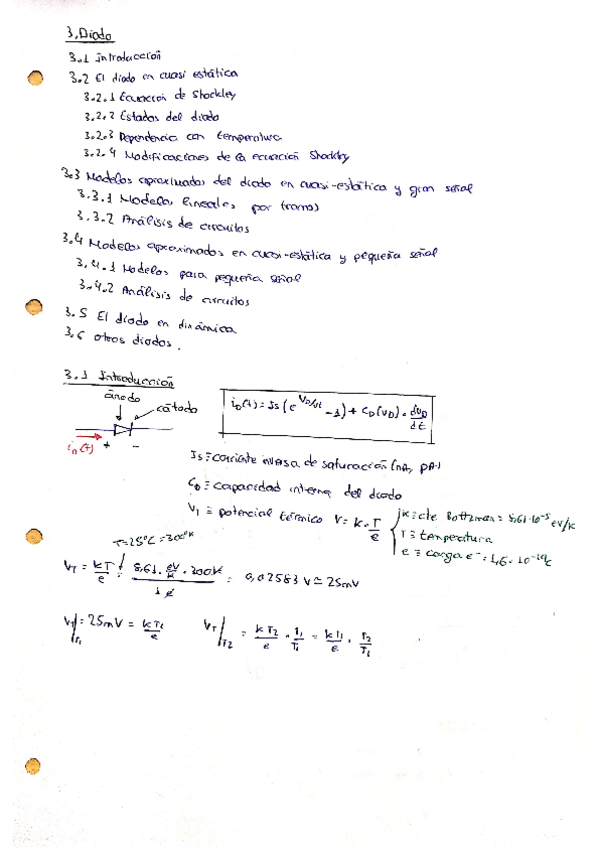 3. Diodo
3.1 Introducción
3.2 El diodo en cuasi estática
3.2.1 Ecuación de Shockley
3.2.2 Estados del diodo
3.2.3 Dependencia con temperatura
3.2.4 Modificaciones de la ecuación Shockley
3.3 Modelos aproximados del diodo en cuasi-estática y gran señal
3.3.1 Modelos lineales por tramos
3.3.2 Análisis de circuitos
3.4 Modelos aproximados en cuasi-estática y pequeña señal
3.4.1 Modelos para pequeña señal
3.4.2 Análisis de circuitos
3.5 El diodo en dinámica
3.6 otros diodos.
3.1 Introducción
ánodo
cátodo
i_D(t) + -
i_D(t) = Is (e^{V_D/V_t} - 1) + C_D(V_D) · dV_D/dt
Is ≡ corriente inversa de saturación (nA, pA)
C_D ≡ capacidad interna del diodo
V_T ≡ potencial térmico V = k·T/e
k ≡ cte Boltzman = 8,61·10^-5 eV/K
T ≡ temperatura
e ≡ carga e^- = 1,6·10^-19 C
T=25ºC = 300ºK
V_T = kT/e = 8,61 · eV/K · 300K / 1 e = 0,02583 V ≃ 25mV
V_T|_{T1} = 25mV = kT_1/e V_T|_{T2} = kT_2/e · T_1/T_1 = kT_1/e · T_2/T_1